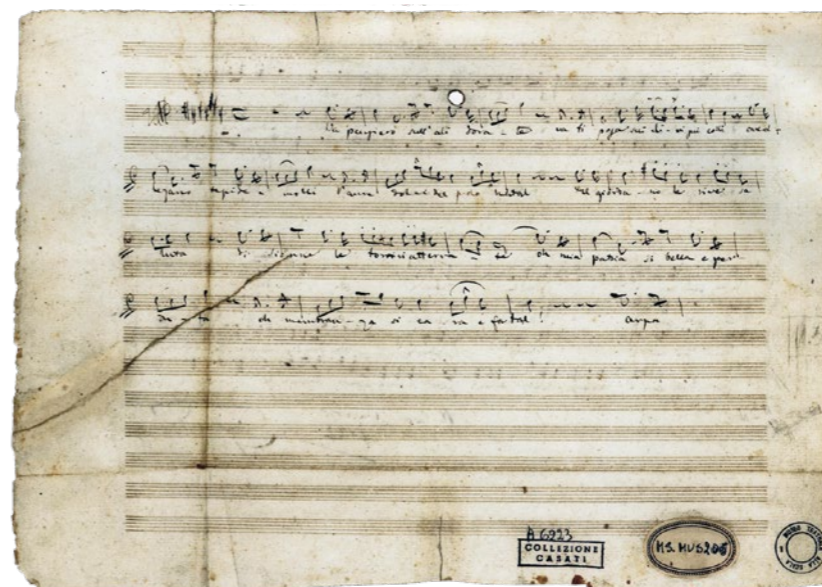 Va pensiero sull'ali dora - te va ti posa sui cli - vi sui colli ove ol -
ezzano tepide e molli l'aure dolci del suolo natal Del giorda - no le rive sa -
luta di sionne le torri atterra - te oh mia patria si bella e per -
du - ta oh membran - za si ca - ra e fatal! arpa
A 6923
COLLEZIONE
CASATI
MS. MUS 206
MUSEO TEATRALE
ALLA SCALA